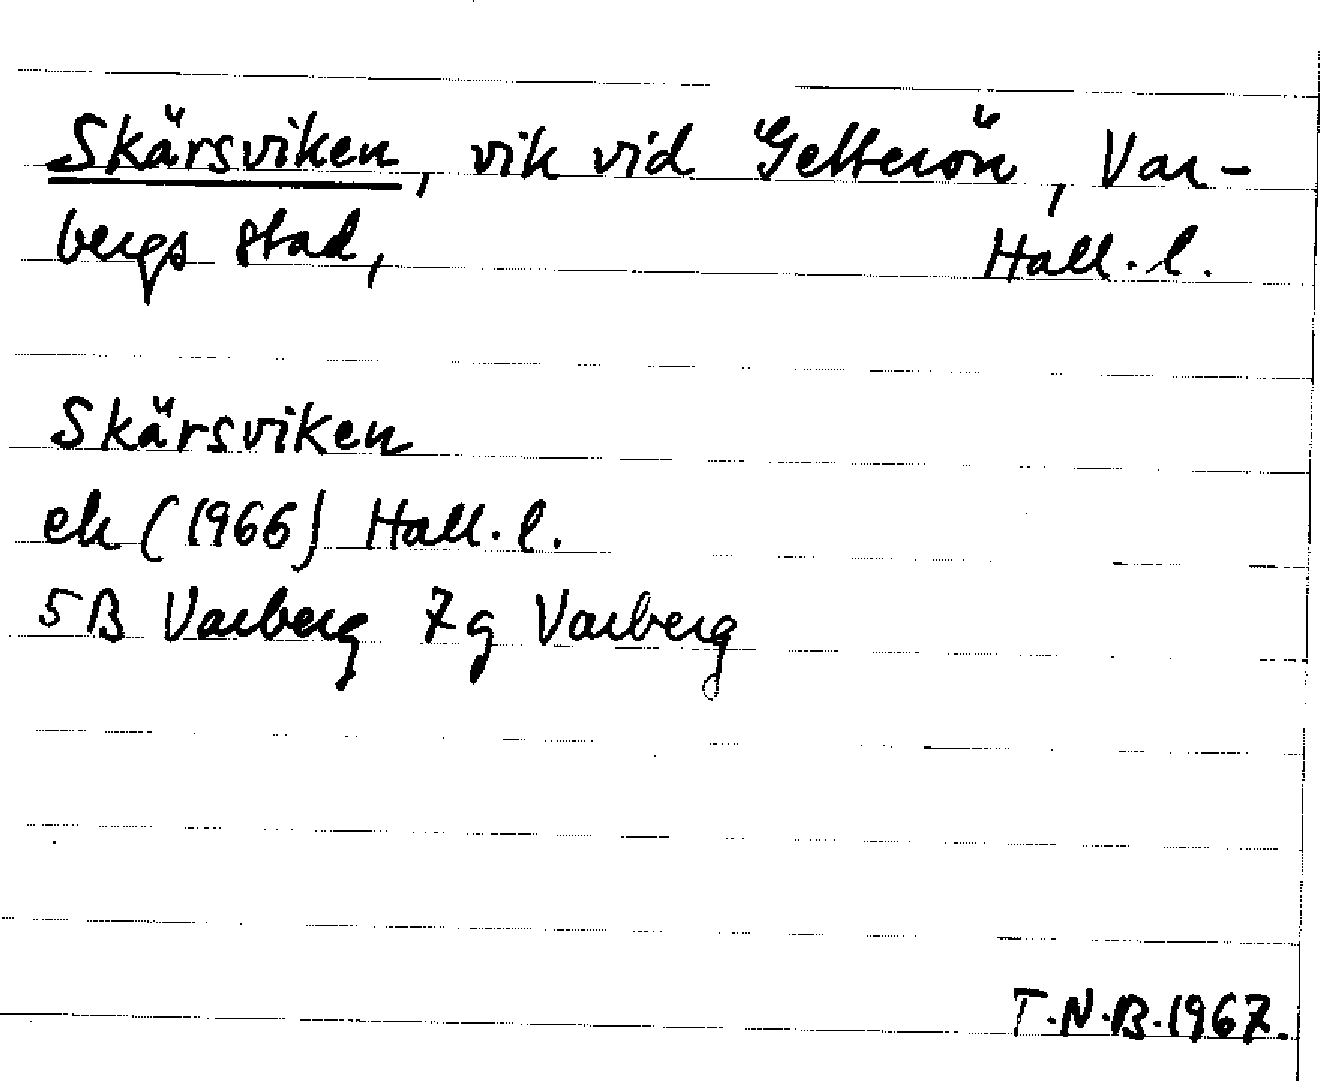 Skärsviken, vik vid Getterön, Var-
bergs stad, Hall. l.
Skärsviken
ek (1966) Hall. l.
5B Varberg 7g Varberg
T.N.B.1967.